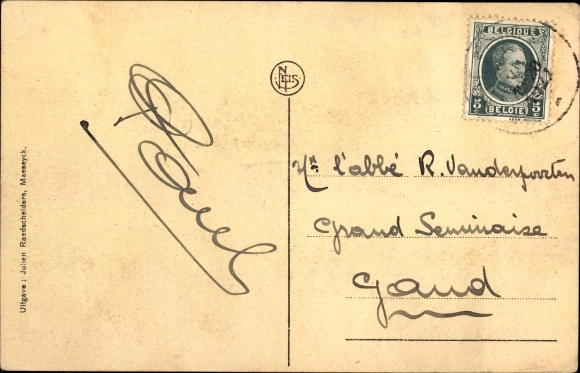 Uitgave: Julien Raedschelders, Maeseyck.
Paul
NELS
BELGIQUE
5c 5c
BELGIË
Mr l'abbé R. Vanderpoorten
Grand Seminaise
Gand